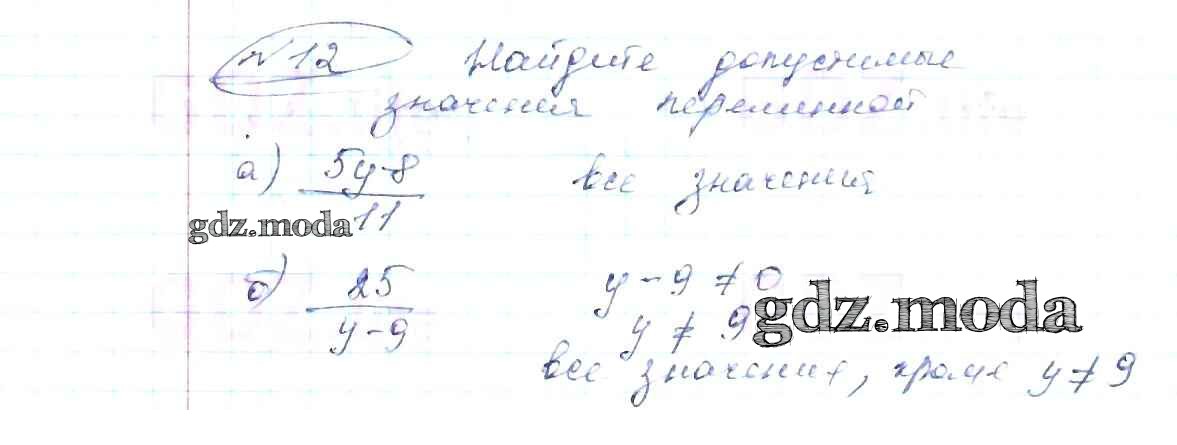 №12 Найдите допустимые
значения переменной
а) 5y-8 все значения
11
gdz.moda
б) 25 y - 9 ≠ 0
y - 9 y ≠ 9
gdz.moda
все значения, кроме y ≠ 9